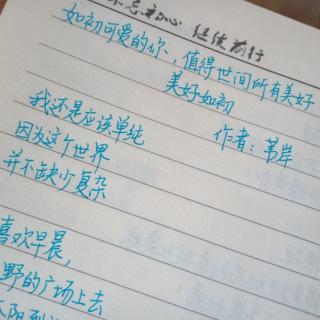 不忘初心 继续前行
如初可爱的你、值得世间所有美好
美好如初
作者:苇岸
我还是应该单纯
因为这个世界
并不缺少复杂
喜欢早晨,
野的广场上去
太阳到